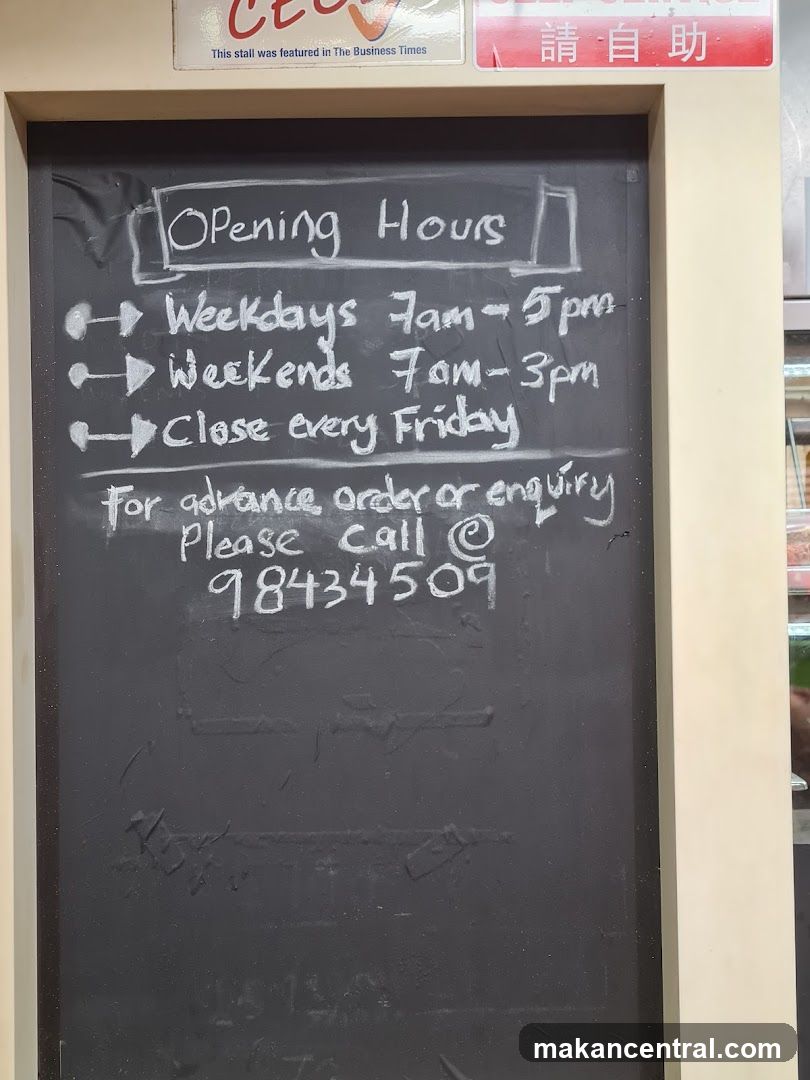 This stall was featured in The Business Times
請自助
Opening Hours
Weekdays 7am - 5pm
Weekends 7am - 3pm
Close every Friday
For advance order or enquiry
Please call @
98434509
makancentral.com